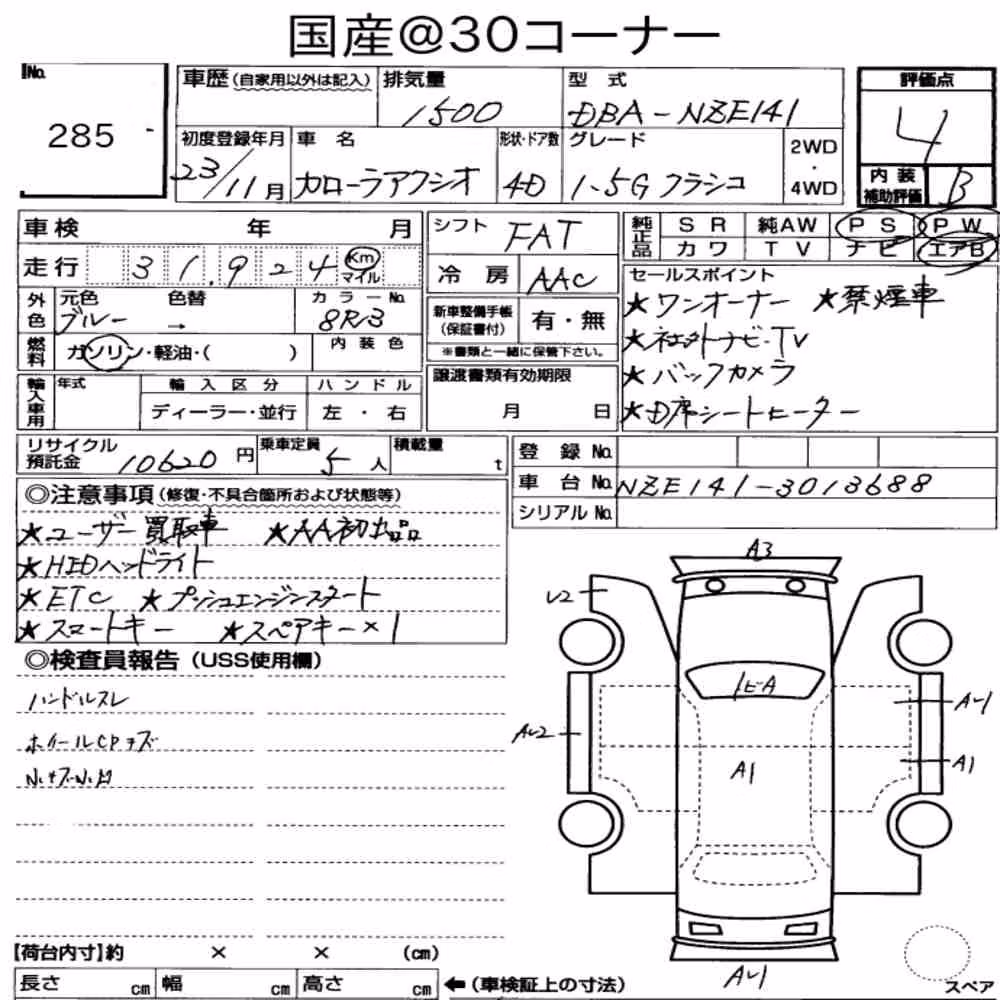 国産@30コーナー
No.
285
車歴(自家用以外は記入)
排気量
1500
型式
DBA-NZE141
評価点
4
初度登録年月
23/11月
車名
カローラアクシオ
形状・ドア数
4D
グレード
1.5G ラグゼル
2WD
・
4WD
内装
補助評価
B
車検 年 月
走行 31,924 Km マイル
シフト
FAT
冷房 AAC
純正品
SR 純AW PS PW
カワ TV ナビ エアB
外色
元色 色替 カラーNo.
ブルー → 8R3
燃料
ガソリン・軽油・( )
内装色
新車整備手帳
(保証書付)
有・無
※書類と一緒に保管下さい。
セールスポイント
★ワンオーナー ★禁煙車
★社外ナビ・TV
★バックカメラ
★D席シートヒーター
輸入車用
年式 輸入区分 ハンドル
ディーラー・並行 左・右
譲渡書類有効期限
月 日
リサイクル
預託金 10620円
乗車定員 5人
積載量 t
登録No.
車台No. NZE141-3013688
シリアルNo.
◎注意事項(修復・不具合箇所および状態等)
★ユーザー買取車 ★AA初出品
★HIDヘッドライト
★ETC ★プッシュエンジンスタート
★スマートキー ★スペアキー×1
◎検査員報告(USS使用欄)
ハンドルスレ
ホイールCPキズ
A3
U2
1ヒA
AU1
AU2
A1
A1
AU1
【荷台内寸】約 × × (cm)
長さ cm 幅 cm 高さ cm
←(車検証上の寸法)
スペア